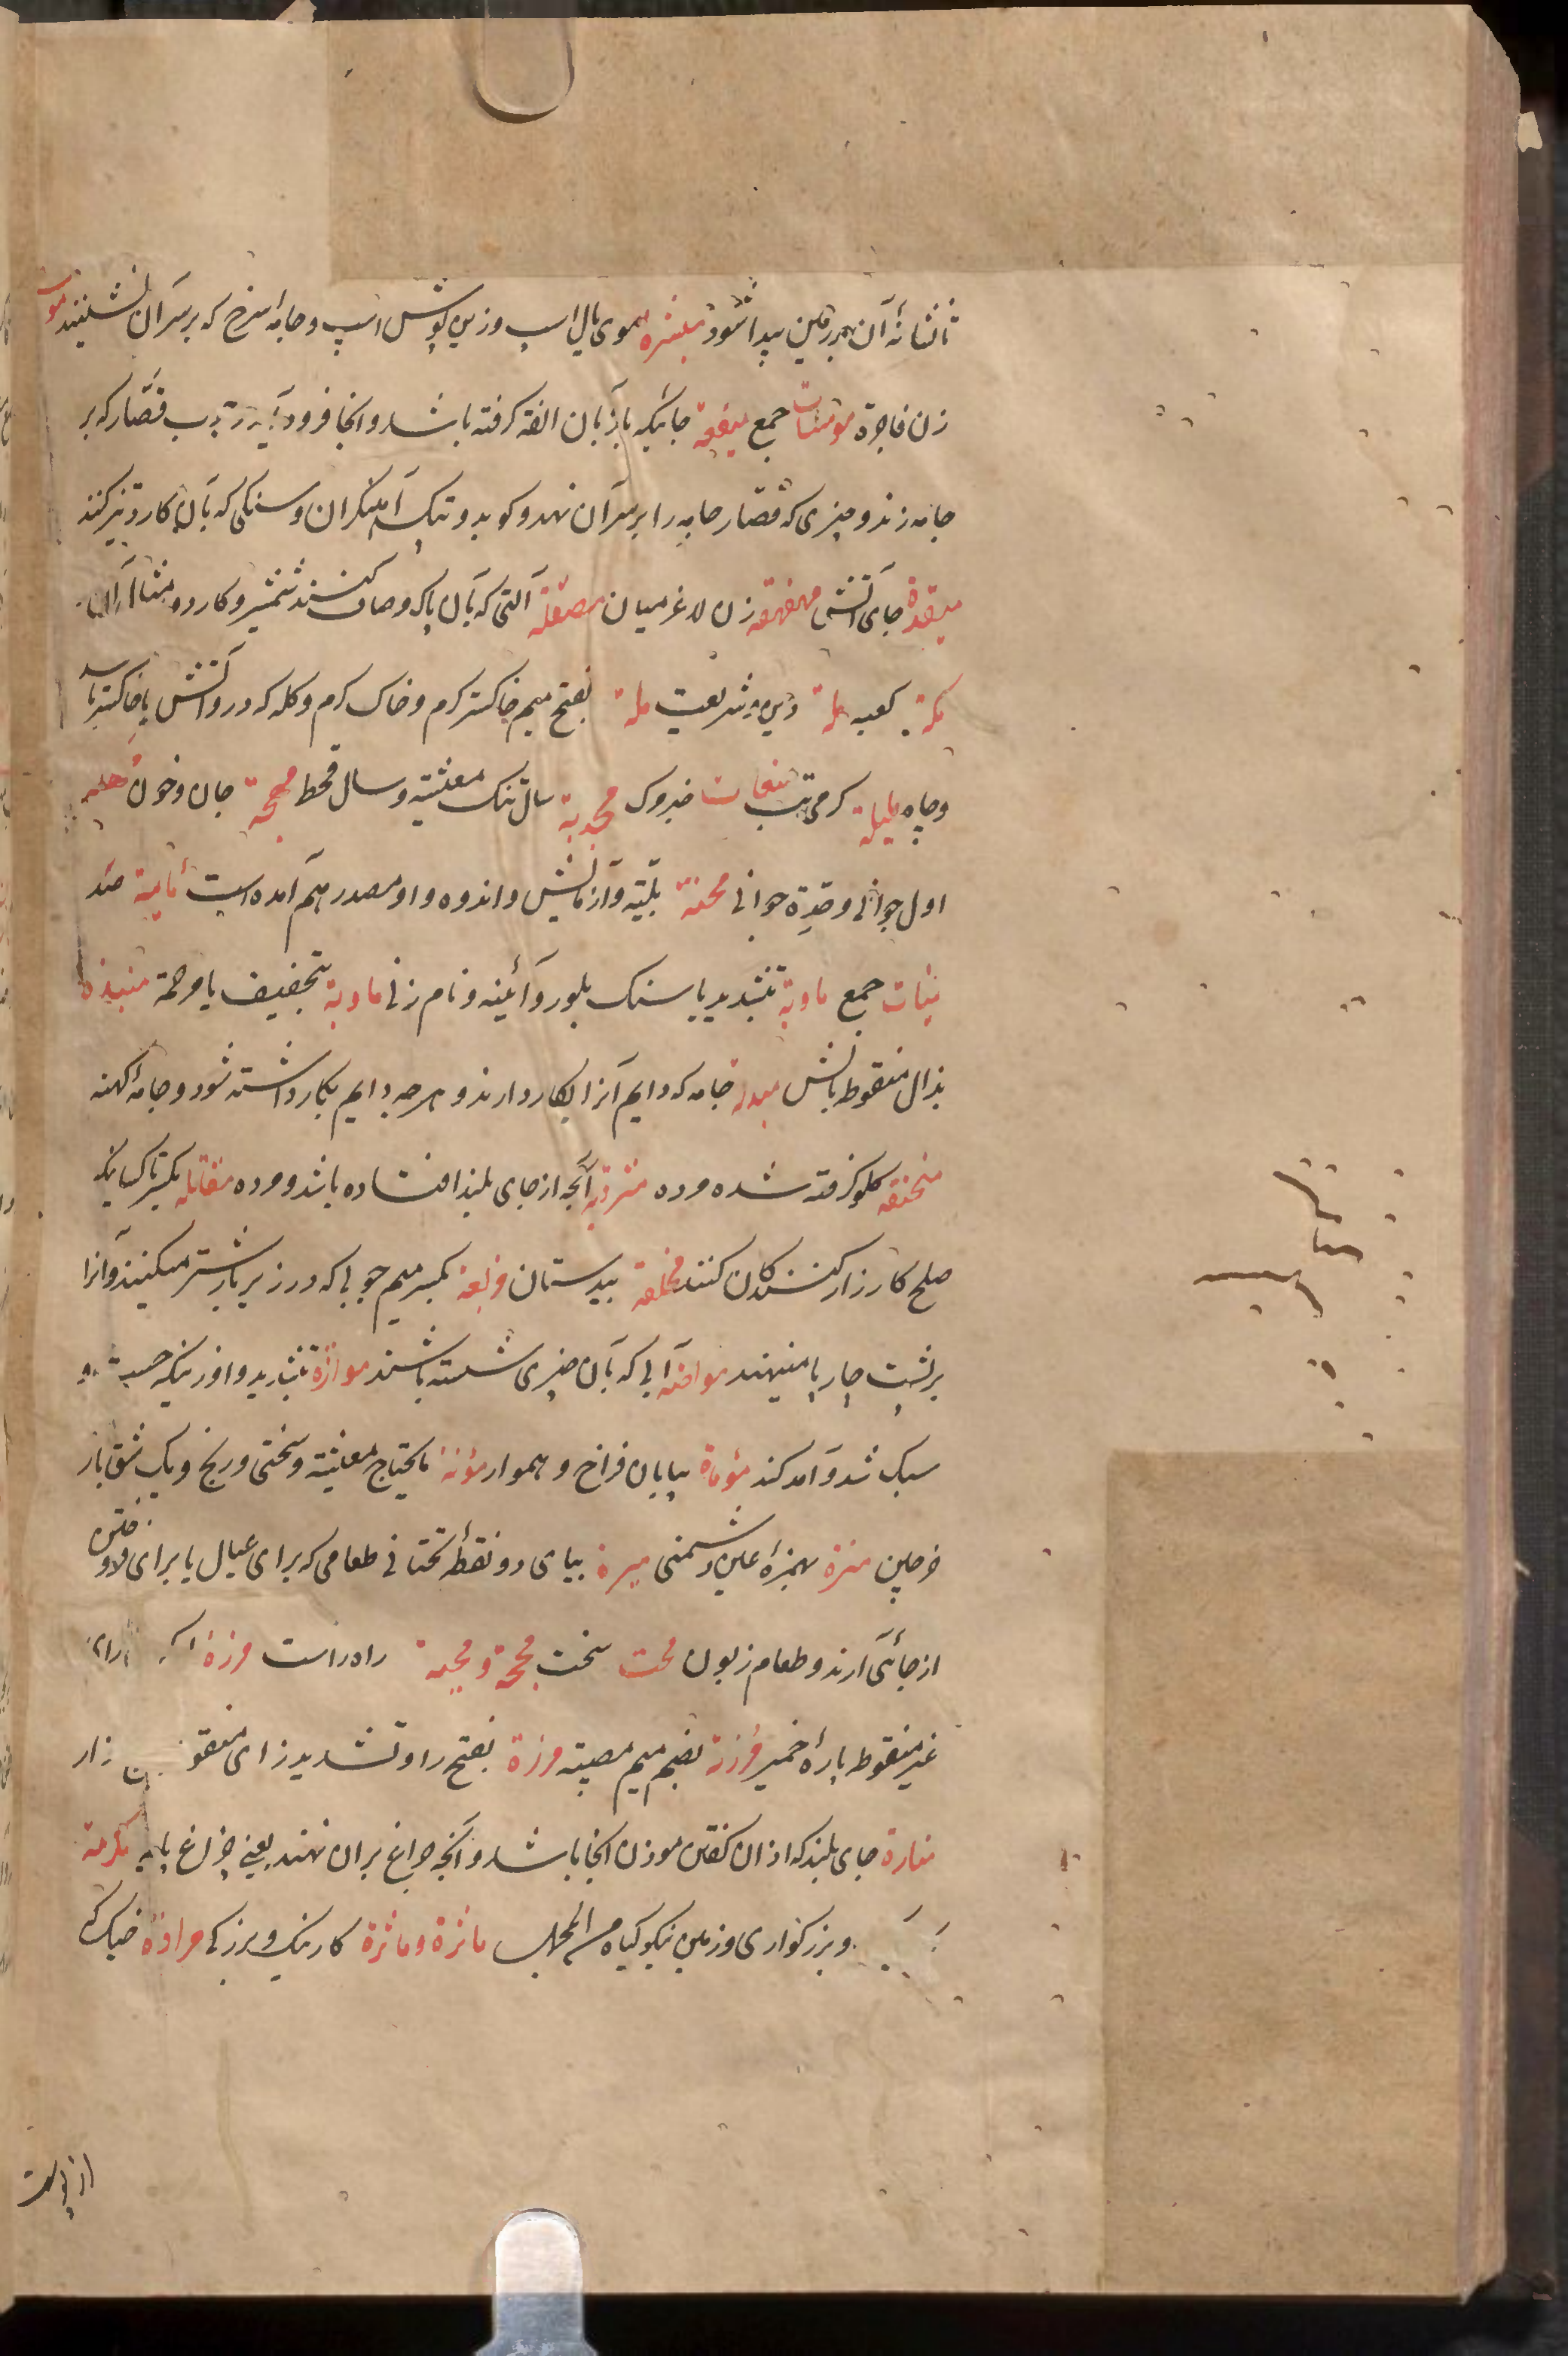 تا نشانهٔ آن بر زمین پیدا شود میثره موی یال اسپ و زین پوش اسپ و جامهٔ سرخ که بر سر آن نشینند
زن فاجرة مومسات جمع میقعة جائیکه باز بآن الفة گرفته باشد و آنجا فرود آید و چوب قصّار که بر
جامه زند و چیزی که قصّار جامه را بر سر آن نهد و کوبد و پتک آهنگران و سنگی که بآن کارد تیز کنند
میقدة جای آتش مهفهفه زن لاغر میان مصقلة آلتی که بآن پاک و صاف کنند شمشیر و کارد و مثال آن
مکة کعبه ملة دین و شریعت ملة بفتح میم خاکستر گرم و خاک گرم و کله که درو آتش یا خاکستر باشد
و چاه ملیلة گرمی تب خبزوک مجدبة سال تنگ معشیة و سال قحط مهجة جان و خون
اول جوانی و حدة جوانی محنة بلیّة و آزمایش و اندوه و او مصدر هم آمده است مایة صد
مئیات جمع ماویة بتشدید یا سنگ بلور و آئینه و نام زنی ماویة بتخفیف یا مرحمة منبذه
بذال منقوط بالش مبذلة جامه که دایم آنرا بکار دارند و هر چه دایم بکار داشته شود و جامهٔ کهنه
منخنقه گلو گرفته شده مرده متردیه آنچه از جای بلند افتاده باشد و مرده مقاتله بکسر تا کسانیکه
صلح کارزار کنندگان کنند بیدستان مربعة بکسر میم چوبی که در زیر بار شتر میکنند و آنرا
بر پشت چارپا مینهند آبی که بآن چیزی شسته باشند بتشدید و او زنیکه چست و
سبک شد و آمد کند موماة بیابان فراخ و هموار مؤنة مایحتاج معشیة و سختی و رنج و یک شق بار
خرجین مئرة بهمزهٔ عین دشمنی میرة بیای دو نقطهٔ تحتانی طعامی که برای عیال یا برای فروختن
از جائی آرند و طعام زبون محت سخت محجة و راه راست مرزة
غیر منقوط پارهٔ خمیر مرزئة بضم میم مصیبة مرزة بفتح را و تشدید زای منقوط زار
منارة جای بلند که اذان گفتن موذن آنجا باشد و آنچه چراغ بر آن نهند یعنی چراغ پایه مکرمة
و بزرگواری و زمین نیکو گیاه ماثرة و ماثرة کار نیک و بزرگی مرادة خیک